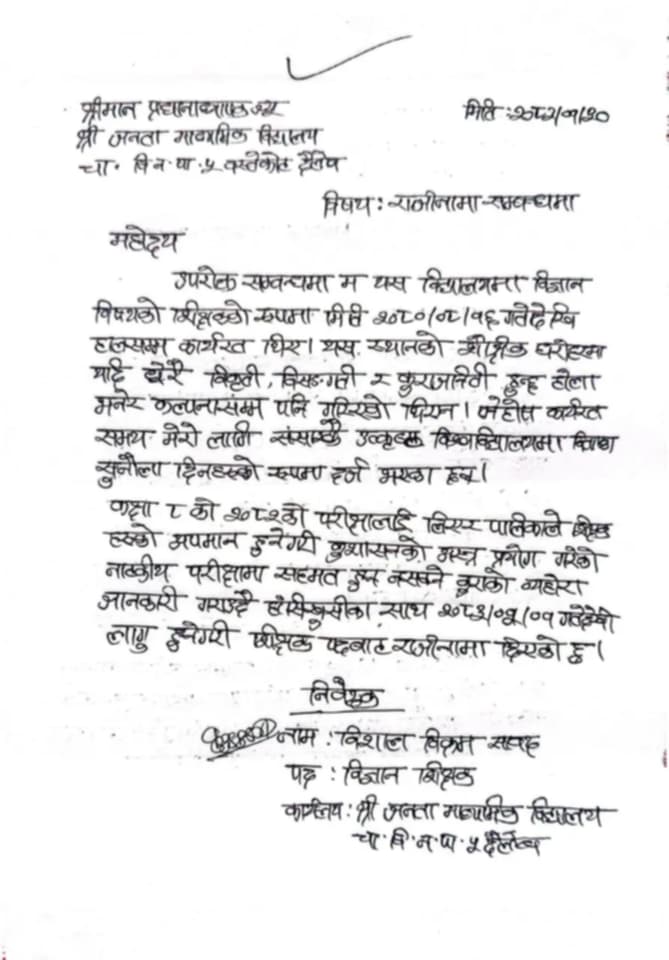 श्रीमान प्रधानाध्यापकज्यू
मिति :२०८२/०१/२०
श्री जनता माध्यमिक विद्यालय
चा. वि. न. पा. ५ दैलेख
विषय : राजीनामा सम्बन्धमा
महोदय
उपरोक्त सम्बन्धमा म यस विद्यालयमा विज्ञान
विषयको शिक्षकको रूपमा मिति २०८०/०८/१६ गतेदेखि
हालसम्म कार्यरत थिए। यस स्थानको शैक्षिक धरोहरमा
यदि धेरै विकृती, विसङगती र कुराजनिती हुन्छ होला
भनेर कल्पनासम्म पनि गरिएको थिएन। कार्यरत
समय मेरो लागी संसारकै उत्कृष्ठ विश्वविद्यालयमा
सुनौला दिनहरूको रूपमा दर्ज भएका छन्।
कक्षा ८ को २०८१को परीक्षालाई लिएर पालिकाले शिक्षक
हरूको अपमान हुनेगरी कुशासनको अस्त्र प्रयोग गरेको
नाटकीय परीक्षामा सहमत हुन नसक्ने कुराको व्यहोरा
जानकारी गराउदै हाँसिखुसीका साथ गतेदेखी
लागु हुनेगरी शिक्षक पदबाट राजीनामा दिएको छु।
निवेदक
नाम : विशाल विक्रम
पद : विज्ञान शिक्षक
कार्यालय : श्री जनता माध्यमिक विद्यालय
चा. वि. न. पा. ५ दैलेख